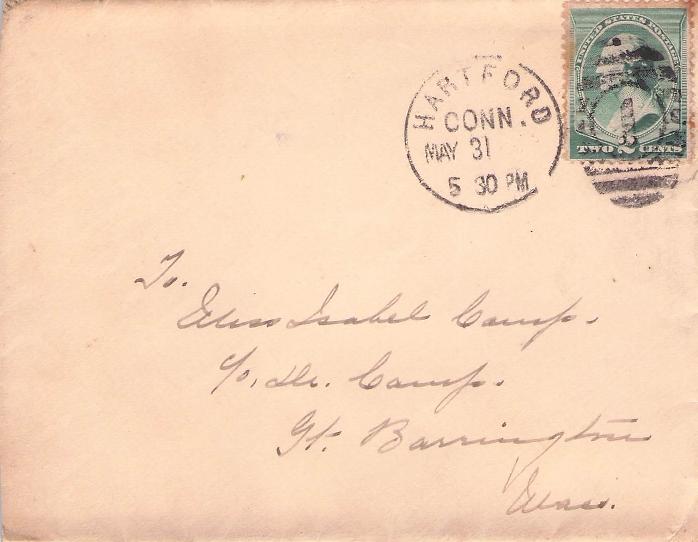 UNITED STATES POSTAGE
TWO 2 CENTS
HARTFORD
CONN.
MAY 31
5 30 PM
1
To.
Miss Isabel Camp.
c/o. Dr. Camp.
Gt. Barrington
Mass.